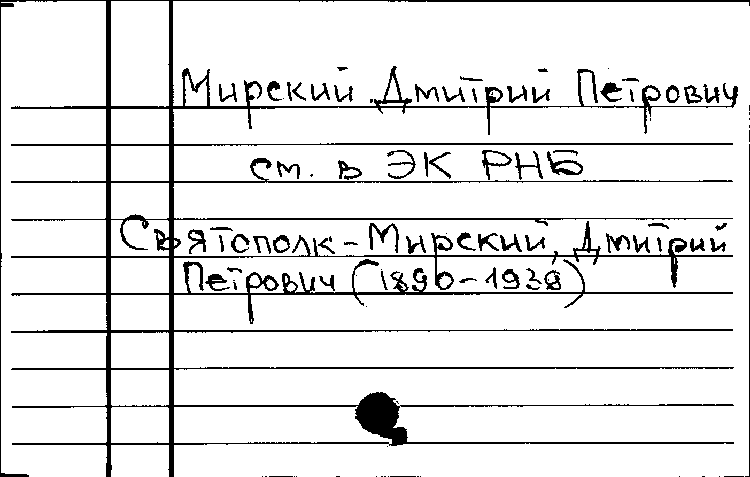 Мирский Дмитрий Петрович
см. в ЭК РНБ
Святополк-Мирский, Дмитрий
Петрович (1890-1939)